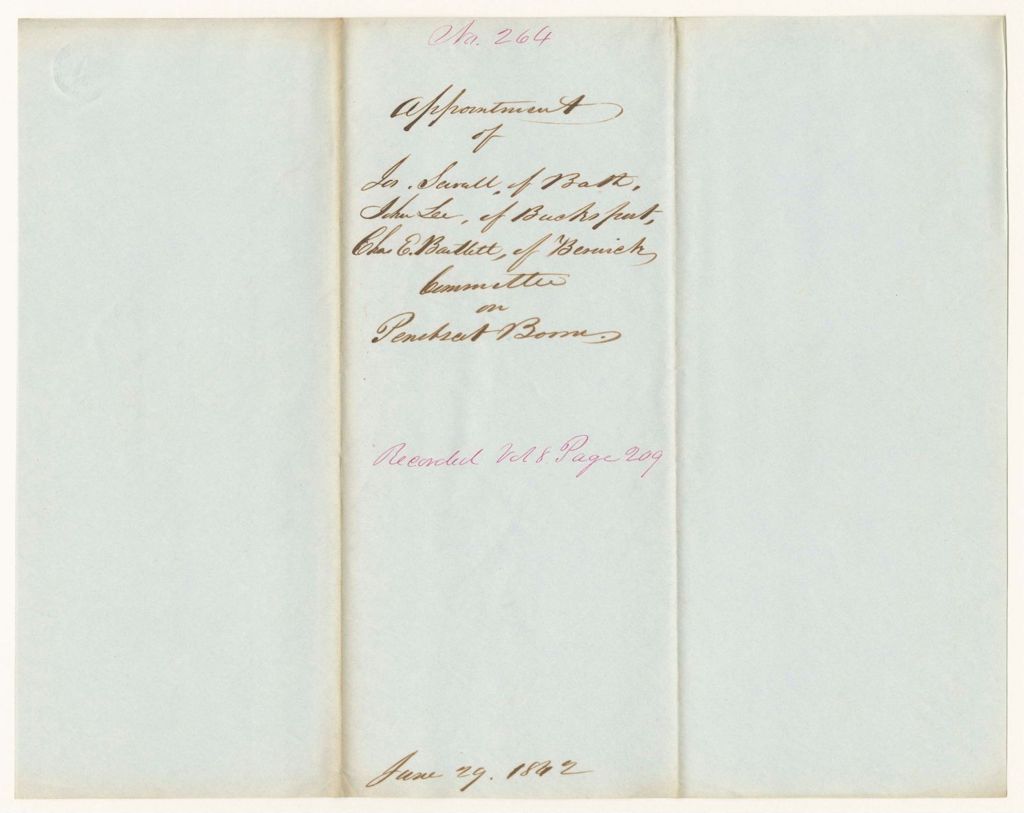 No. 264
Appointment
of
Jos. Sewall, of Bath,
John Lee, of Bucksport,
Chas E. Bartlett, of Berwick,
Committee
on
Penobscot Boom.
Recorded Vol 8. Page 209
June 29. 1842